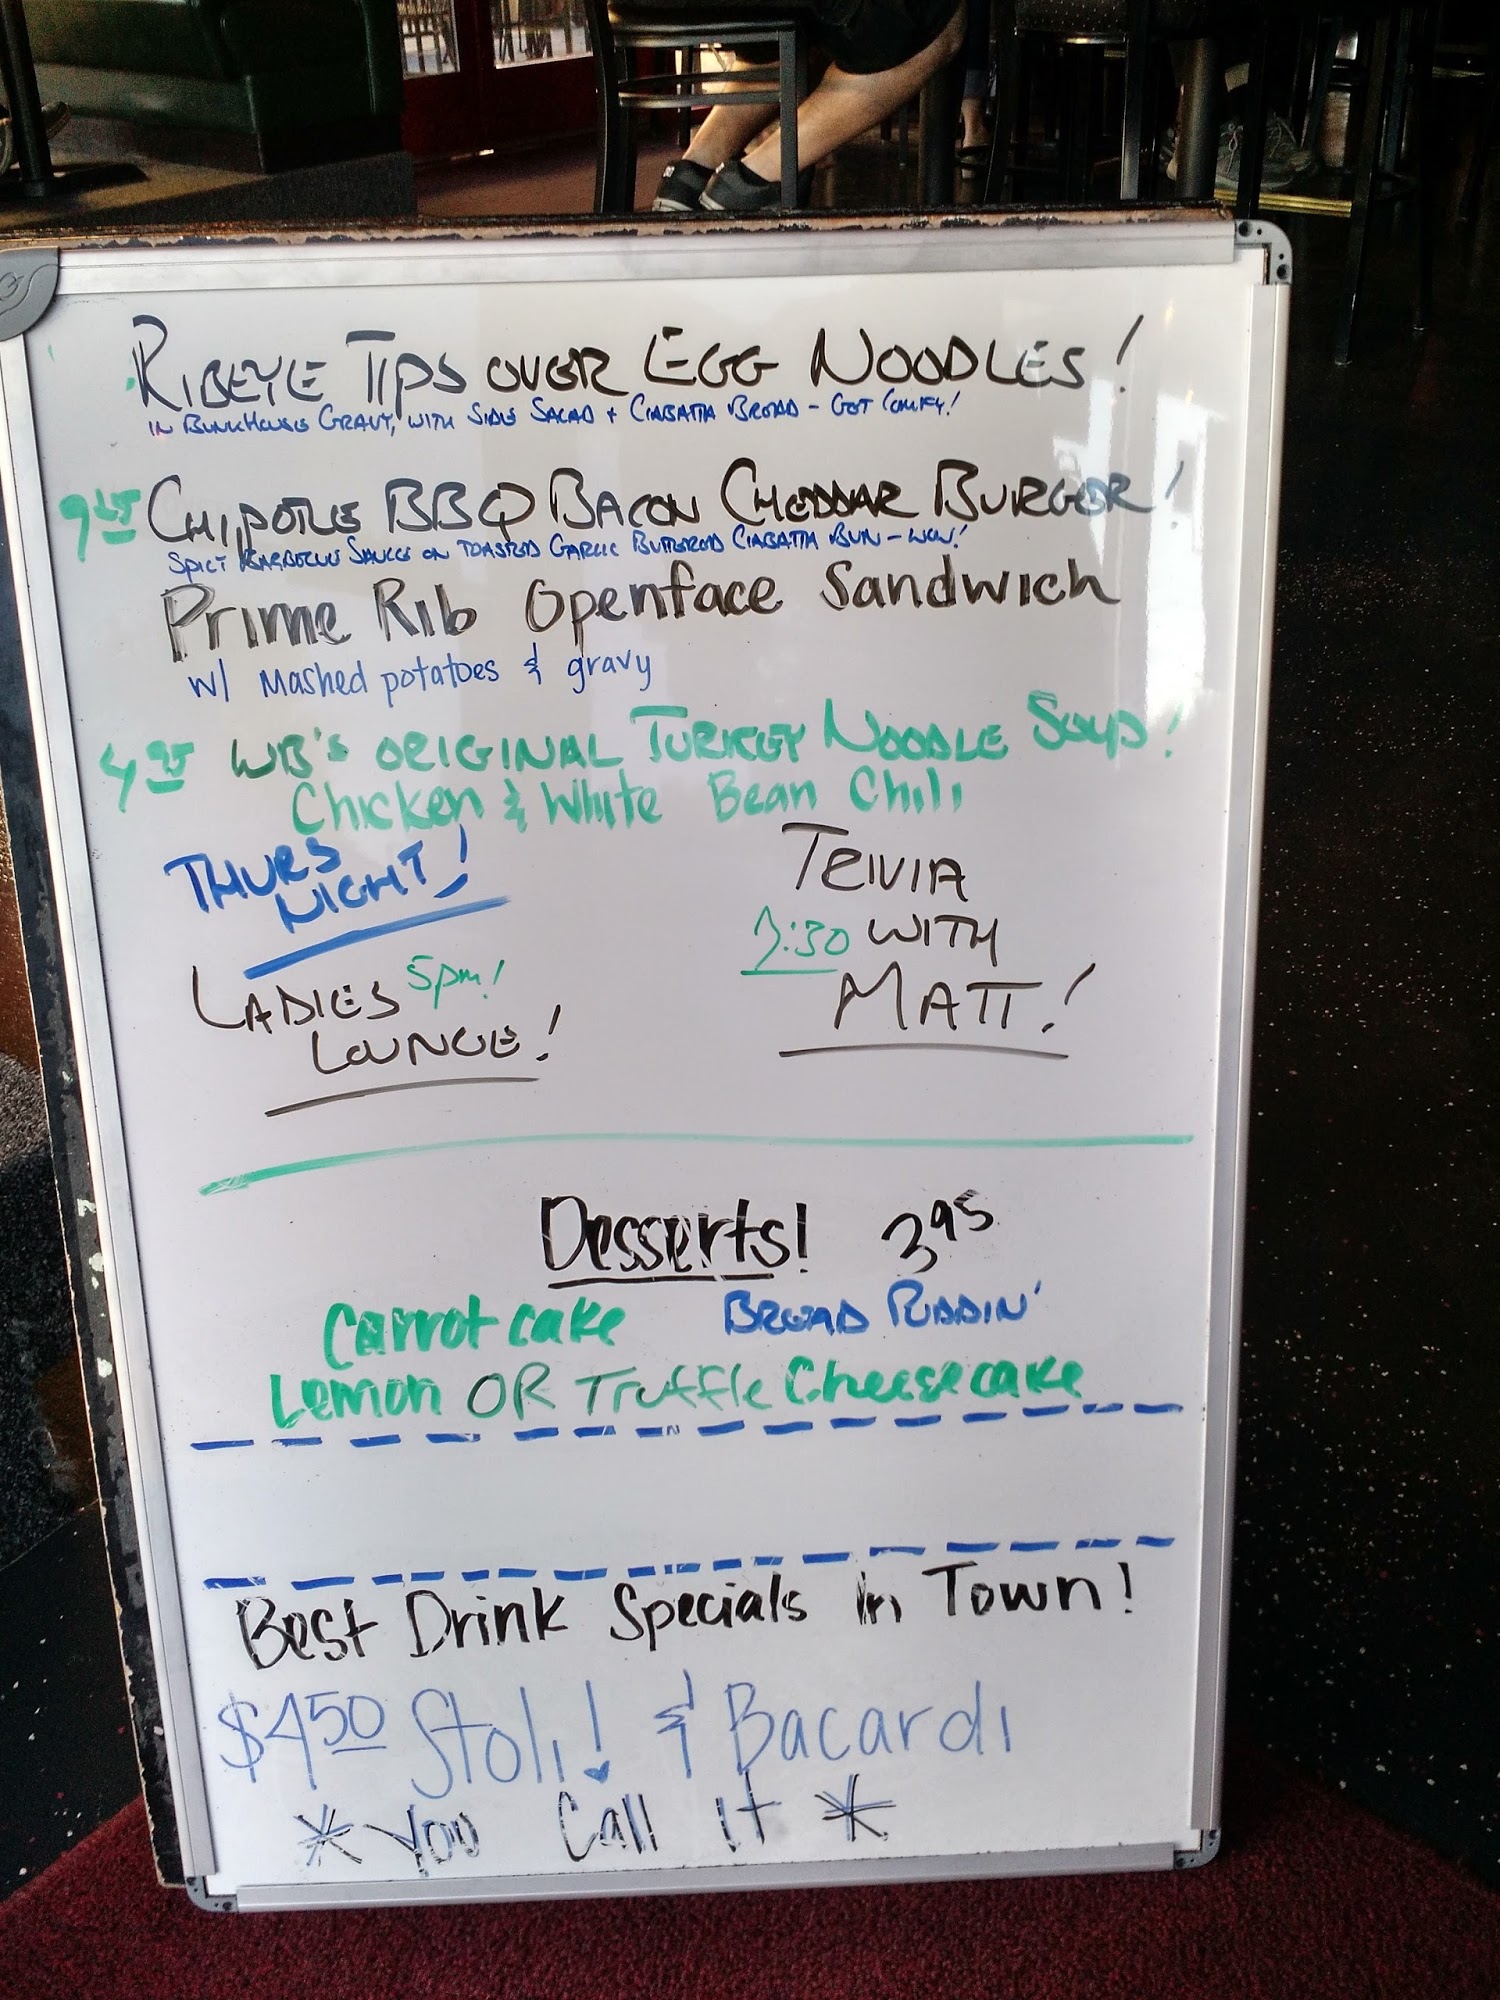 RIBEYE TIPS OVER EGG NOODLES!
IN BUNKHOUSE GRAVY, WITH SIDE SALAD + CIABATTA BREAD - GET COMFY!
9.95 CHIPOTLE BBQ BACON CHEDDAR BURGER!
SPICY BARBECUE SAUCE ON TOASTED GARLIC BUTTERED CIABATTA BUN - WOW!
Prime Rib Openface Sandwich
w/ Mashed potatoes & gravy
4.95 WB'S ORIGINAL TURKEY NOODLE SOUP!
Chicken & White Bean Chili
THURS
NIGHT!
LADIES 5pm!
LOUNGE!
TRIVIA
7:30 WITH
MATT!
Desserts! 3.95
Carrot cake BREAD PUDDIN'
Lemon OR Truffle Cheesecake
Best Drink Specials in Town!
$4.50 Stoli! & Bacardi
* You Call it *